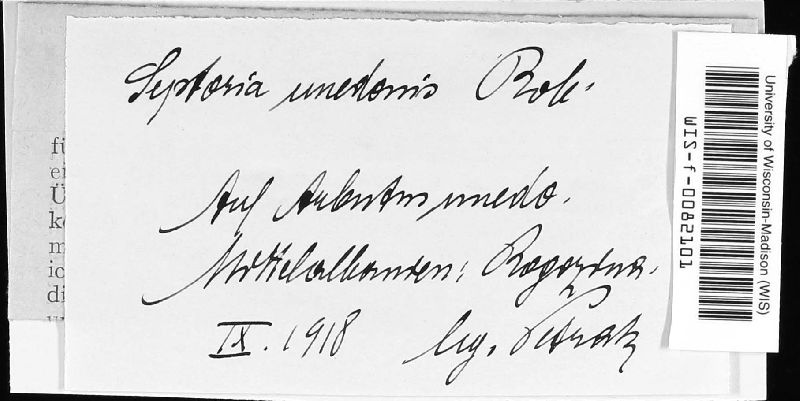 Septoria unedonis Rob.
Auf Arbutus unedo.
Mittelalbanien: Rogozina.
IX. 1918 leg. Petrak
University of Wisconsin-Madison (WIS)
WIS-f-0082101
fü
ei
Ü
ke
m
ic
di